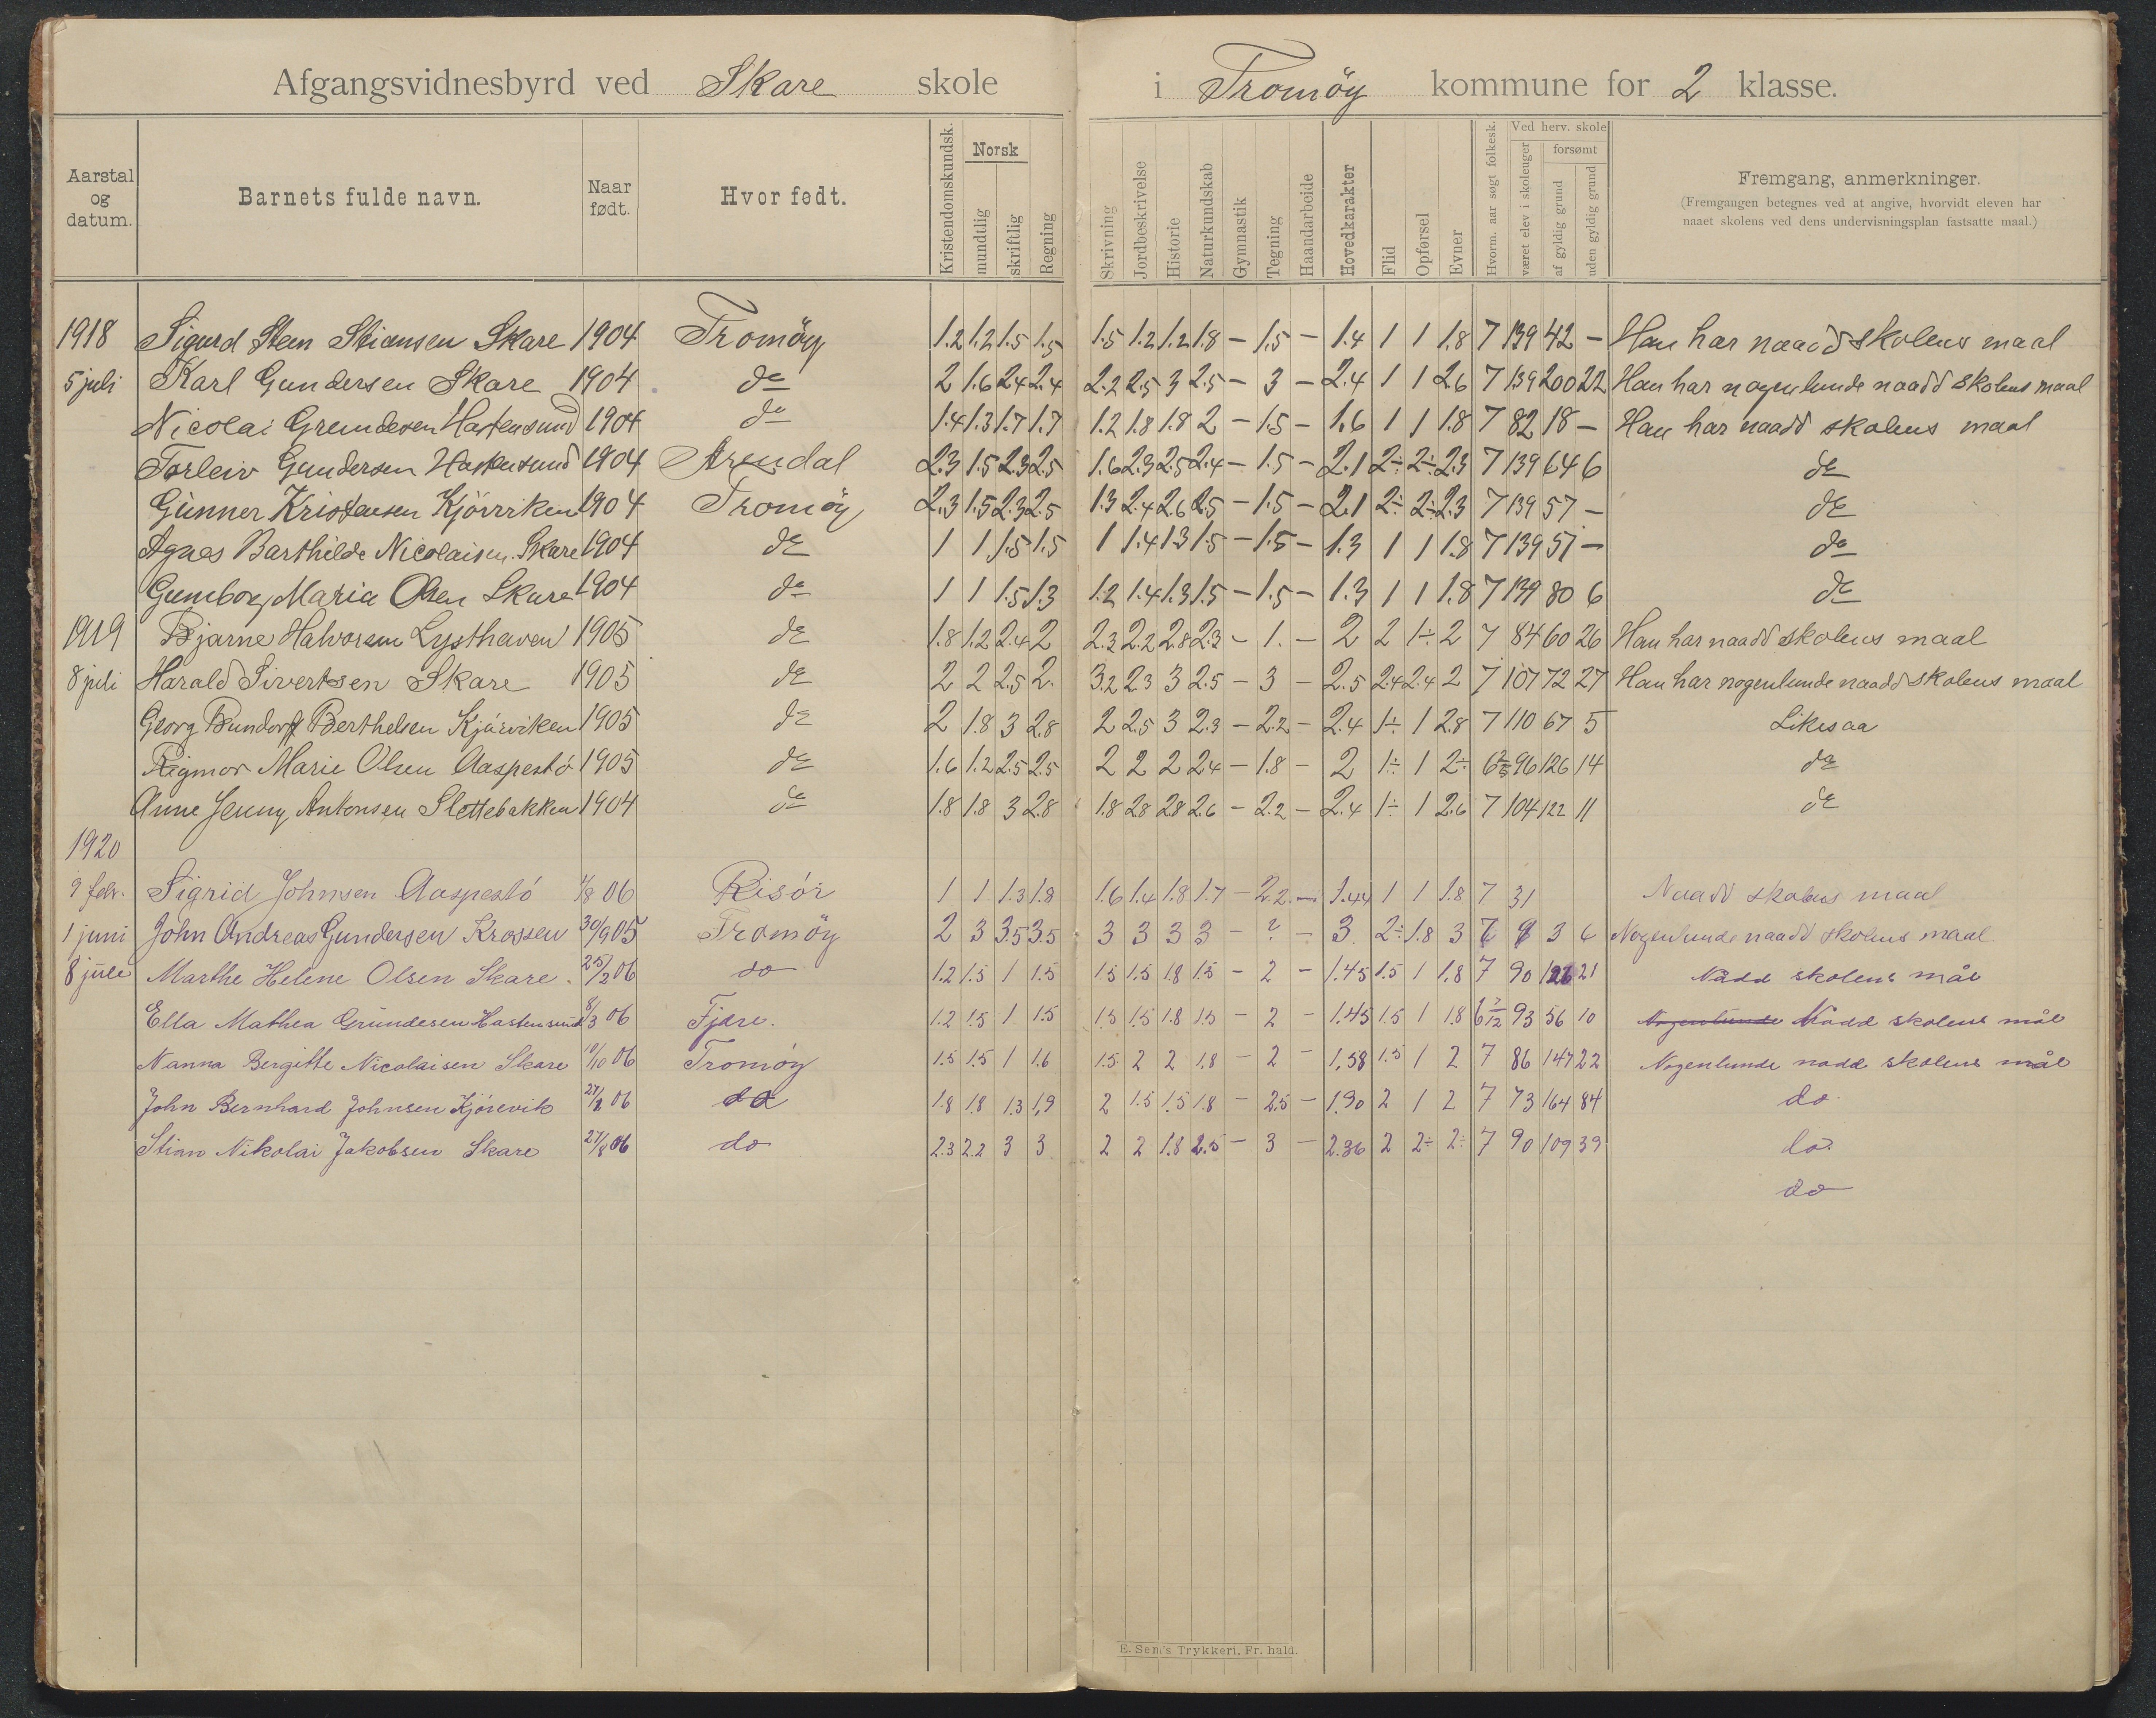 Afgangsvidnesbyrd ved Skare skole i Tromöy kommune for 2 klasse.
Aarstal og datum. Barnets fulde navn. Naar født. Hvor født. Kristendomskundsk. Norsk mundtlig skriftlig Regning Skrivning Jordbeskrivelse Historie Naturkundskab Gymnastik Tegning Haandarbeide Hovedkarakter Flid Opførsel Evner Hvorm. aar søgt folkesk. Ved herv. skole været elev i skoleuger forsømt af gyldig grund uden gyldig grund Fremgang, anmerkninger.
(Fremgangen betegnes ved at angive, hvorvidt eleven har
naaet skolens ved dens undervisningsplan fastsatte maal.)
1918 Sigurd Sten Stiansen Skare 1904 Tromöy 1.2 1.2 1.5 1.5 1.5 1.2 1.2 1.8 – 1.5 – 1.4 1 1 1.8 7 139 42 – Han har naadd skolens maal
5 juli Karl Gundersen Skare 1904 do 2 1.6 2.4 2.4 2.2 2.5 3 2.5 – 3 – 2.4 1 1 2.6 7 139 200 22 Han har nogenlunde naadd skolens maal
Nicolai Grundesen Hastensund 1904 do 1.4 1.3 1.7 1.7 1.2 1.8 1.8 2 – 1.5 – 1.6 1 1 1.8 7 82 18 – Han har naadd skolens maal
Torleiv Gundersen Hastensund 1904 Arendal 2.3 1.5 2.3 2.5 1.6 2.3 2.5 2.4 – 1.5 – 2.1 2÷ 2÷ 2.3 7 139 64 6 do
Gunner Kristensen Kjörviken 1904 Tromöy 2.3 1.5 2.3 2.5 1.3 2.4 2.6 2.5 – 1.5 – 2.1 2÷ 2÷ 2.3 7 139 57 – do
Agnes Barthilde Nicolaisen Skare 1904 do 1 1 1.5 1.5 1 1.4 1.3 1.5 – 1.5 – 1.3 1 1 1.8 7 139 57 – do
Gumborg Maria Olsen Skare 1904 do 1 1 1.5 1.3 1.2 1.4 1.3 1.5 – 1.5 – 1.3 1 1 1.8 7 139 80 6 do
1919 Bjarne Halvorsen Lysthaven 1905 do 1.8 1.2 2.4 2 2.3 2.2 2.8 2.3 – 1. – 2 2 1÷ 2 7 84 60 26 Han har naadd skolens maal
8 juli Harald Sivertsen Skare 1905 do 2 2 2.5 2. 3.2 2.3 3 2.5 – 3 – 2.5 2.4 2.4 2 7 107 72 27 Han har nogenlunde naadd skolens maal
Georg Bundorff Berthelsen Kjörviken 1905 do 2 1.8 3 2.8 2 2.5 3 2.3 – 2.2 – 2.4 1÷ 1 2.8 7 110 67 5 Likesaa
Rigmor Marie Olsen Aaspestö 1905 do 1.6 1.2 2.5 2.5 2 2 2 2.4 – 1.8 – 2 1÷ 1 2÷ 96 126 14 do
Anne Jenny Antonsen Slettebakken 1904 do 1.8 1.8 3 2.8 1.8 2.8 2.8 2.6 – 2.2 – 2.4 1÷ 1 2.6 7 104 122 11 do
1920
9 febr. Sigrid Johnsen Aaspestö 1/8 06 Risör 1 1 1.3 1.8 1.6 1.4 1.8 1.7 – 2.2 – 1.44 1 1 1.8 7 31 Naadd skolens maal
1 juni John Andreas Gundersen Krossen 30/9 05 Tromöy 2 3 3.5 3.5 3 3 3 3 – ? – 3. 2÷ 1.8 3 3 6 Nogenlunde naadd skolens maal
8 jule Marthe Helene Olsen Skare. 25/2 06 do 1.2 1.5 1 1.5 1.5 1.5 1.8 1.5 – 2 – 1.45 1.5 1 1.8 7 90 126 21 Nådd skolens mål
Ella Mathea Grundesen Hastensund 8/3 06 Fjære. 1.2 1.5 1 1.5 1.5 1.5 1.8 1.5 – 2 – 1.45 1.5 1 1.8 93 56 10 Nogenlunde Nådd skolens mål
Nanna Bergitte Nicolaisen Skare 10/10 06 Tromöy 1.5 1.5 1 1.6 1.5 2 2 1.8 – 2 – 1,58 1.5 1 2 7 86 147 22 Nogenlunde nådd skolens mål
John Bernhard Johnsen Kjörevik 06 do 1.8 1.8 1.3 1,9 2 1.5 1.5 1.8 – 2.5 – 1.90 2 1 2 7 73 164 84 do
Stian Nikolai Jakobsen Skare 27/8 06 do 2.3 2.2 3 3 2 2 1.8 2.5 – 3 – 2.36 2 2÷ 2÷ 7 90 109 39 do
do
E. Sem's Trykkeri, Fr. hald.